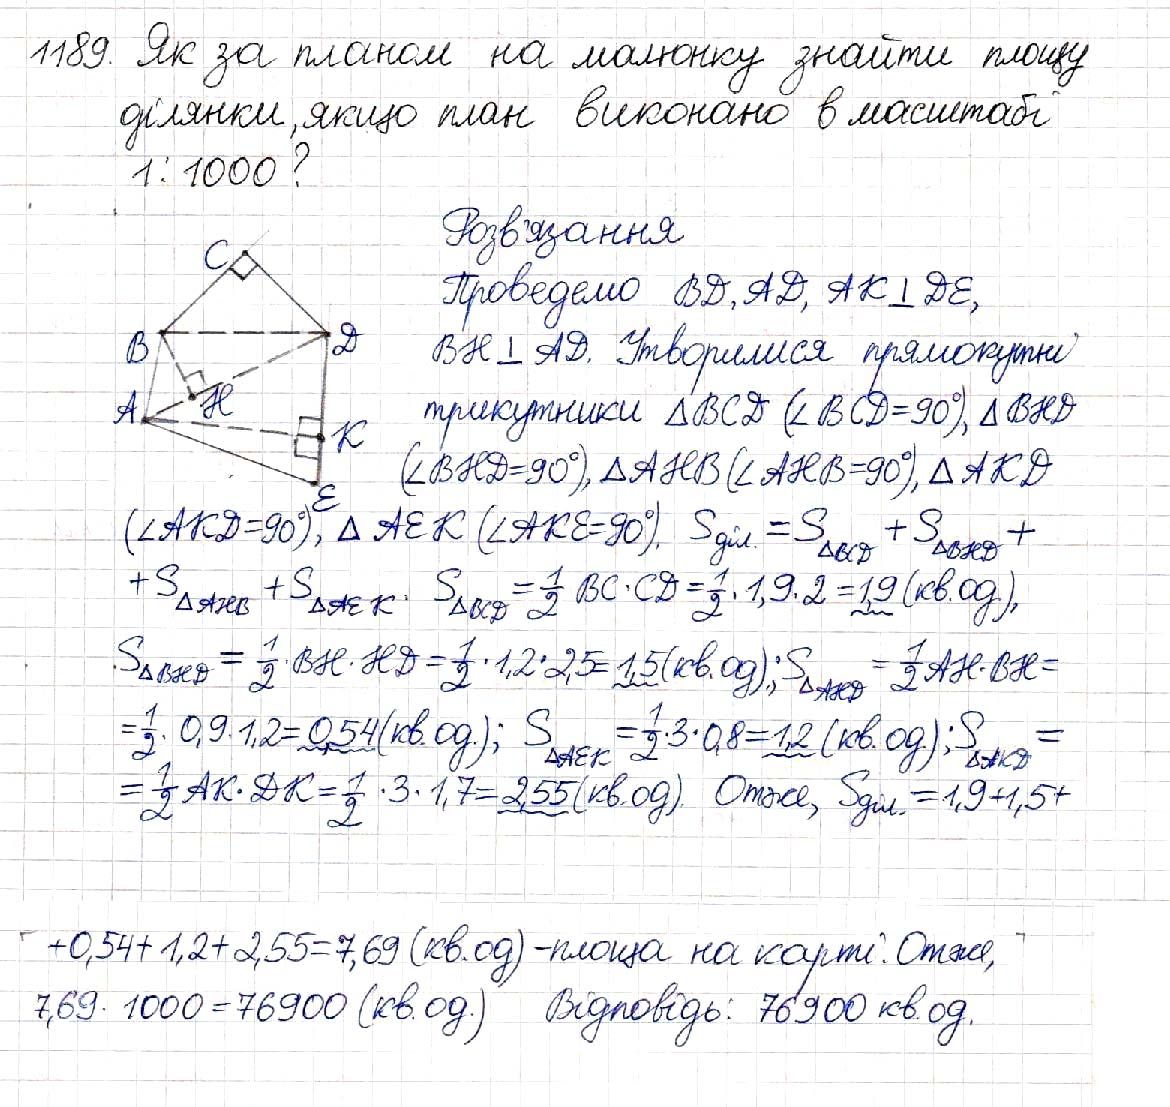 1189. Як за планом на малюнку знайти площу
ділянки, якщо план виконано в масштабі
1:1000?
Розв'язання
C
Проведемо BD, AD, AK⊥DE,
B D
BH⊥AD. Утворилися прямокутні
A H
трикутники ΔBCD (∠BCD=90°), ΔBHD
K
(∠BHD=90°), ΔAHB (∠AHB=90°), ΔAKD
E
(∠AKD=90°), ΔAEK (∠AKE=90°). Sділ. = SΔBCD + SΔBHD +
+ SΔAHB + SΔAEK. SΔBCD = 1/2 BC·CD = 1/2 · 1,9 · 2 = 1,9 (кв.од.),
SΔBHD = 1/2 · BH · HD = 1/2 · 1,2 · 2,5 = 1,5 (кв.од); SΔAHD = 1/2 AH·BH =
= 1/2 · 0,9 · 1,2 = 0,54 (кв.од.); SΔAEK = 1/2 · 3 · 0,8 = 1,2 (кв.од.); SΔAKD =
= 1/2 AK · DK = 1/2 · 3 · 1,7 = 2,55 (кв.од). Отже, Sділ. = 1,9+1,5+
+0,54+1,2+2,55=7,69 (кв.од) - площа на карті. Отже,
7,69 · 1000 = 76900 (кв.од.) Відповідь: 76900 кв.од.